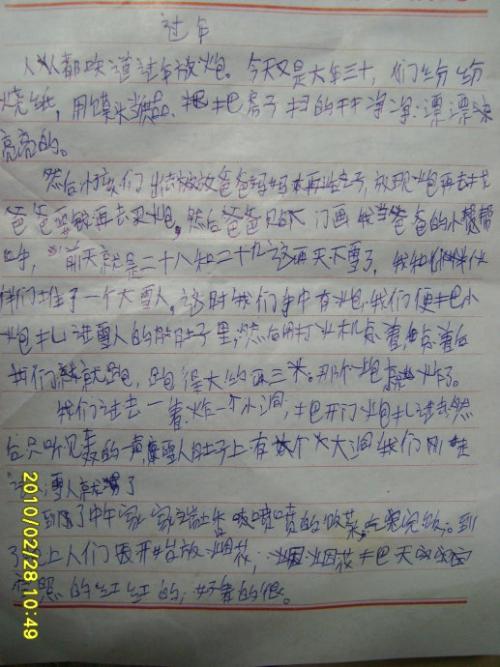 过年
人人都知道过年放炮。今天又是大年三十，人们纷纷
烧纸，用馍头当供品，把把房子扫的干干净净，漂漂亮
亮亮的。
然后小孩们出去放放爸爸妈妈，放现炮再去
爸爸要再去买炮，然后爸爸贴门画我当爸爸的小帮
手，前天就是二十八和二十九这两天下雪了，我和小伙
伴们堆了一个大雪人，这时我们手中有炮，我们便把小
炮扎进雪人的肚子里，然后用打火机点着，点着
我们就跑，跑得大约两三米，那个炮就炸了。
我们过去一看炸一个小洞，把开门炮扎进去然
后只听见轰的一声，雪人肚子上有个大洞我们刚走
，雪人就了
到了中午家家端出香喷喷的饭菜，吃完饭。到
了上人们又开始放烟花，烟花把天空
照的红红的，好看的很。
2010/02/28 10:49